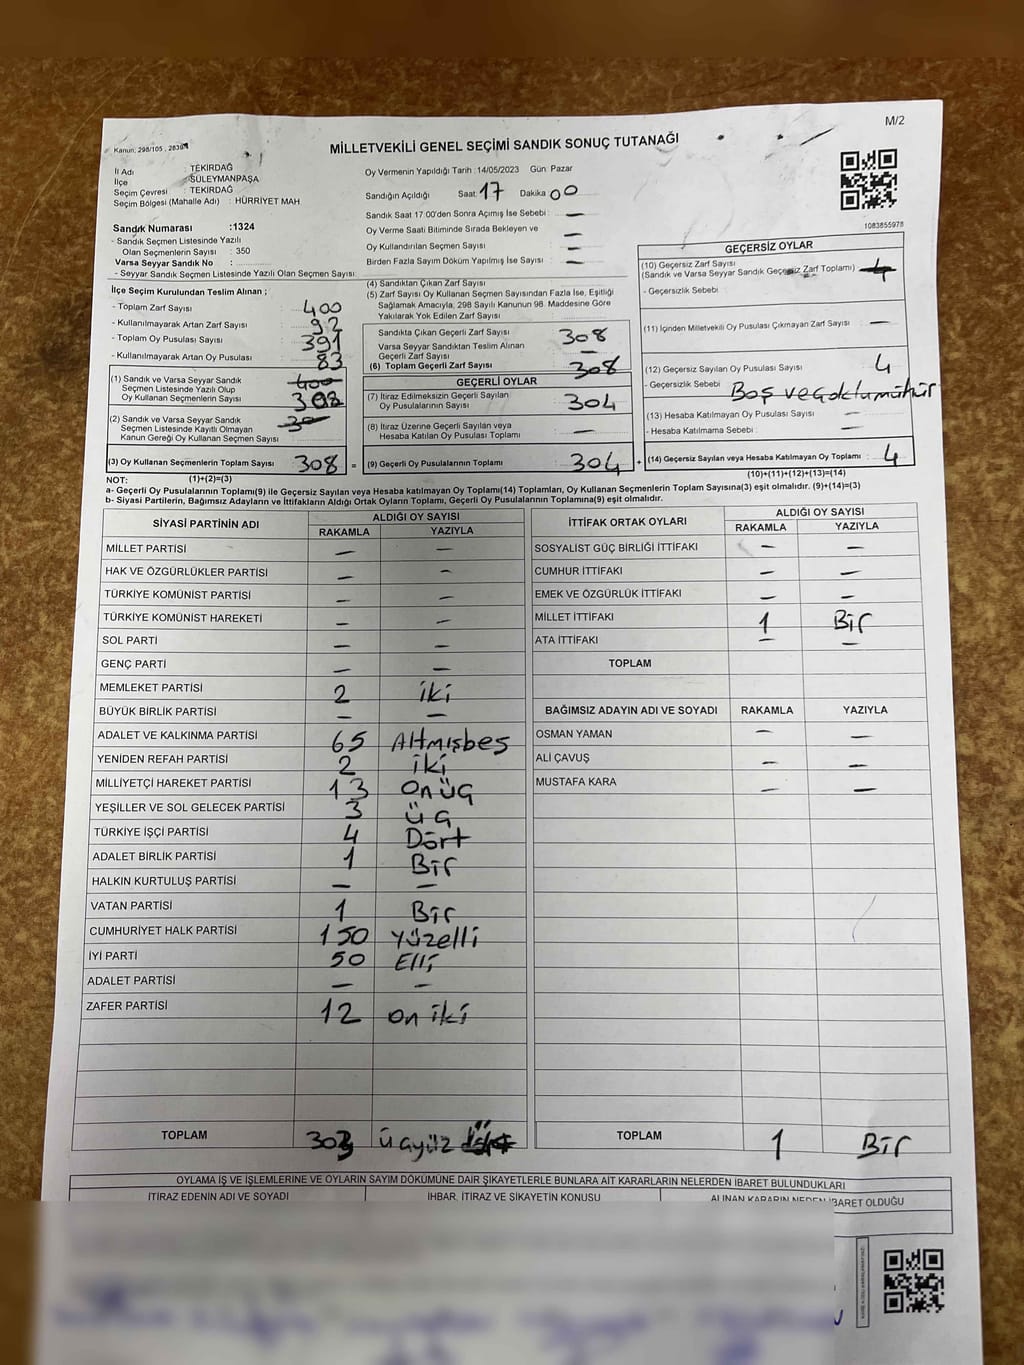 M/2
Kanun: 298/105 , 2839
MİLLETVEKİLİ GENEL SEÇİMİ SANDIK SONUÇ TUTANAĞI
İl Adı : TEKİRDAĞ
İlçe : SÜLEYMANPAŞA
Seçim Çevresi : TEKİRDAĞ
Seçim Bölgesi (Mahalle Adı) : HÜRRİYET MAH
Sandık Numarası :1324
- Sandık Seçmen Listesinde Yazılı
Olan Seçmenlerin Sayısı : 350
Varsa Seyyar Sandık No :
- Seyyar Sandık Seçmen Listesinde Yazılı Olan Seçmen Sayısı:
Oy Vermenin Yapıldığı Tarih :14/05/2023 Gün Pazar
Sandığın Açıldığı Saat: 17 Dakika 00
Sandık Saat 17:00'den Sonra Açılmış İse Sebebi : —
Oy Verme Saati Bitiminde Sırada Bekleyen ve
Oy Kullandırılan Seçmen Sayısı : —
Birden Fazla Sayım Döküm Yapılmış İse Sayısı : —
1083855978
İlçe Seçim Kurulundan Teslim Alınan ;
- Toplam Zarf Sayısı : 400
- Kullanılmayarak Artan Zarf Sayısı : 92
- Toplam Oy Pusulası Sayısı : 391
- Kullanılmayarak Artan Oy Pusulası : 83
(1) Sandık ve Varsa Seyyar Sandık
Seçmen Listesinde Yazılı Olup
Oy Kullanan Seçmenlerin Sayısı : 308
(2) Sandık ve Varsa Seyyar Sandık
Seçmen Listesinde Kayıtlı Olmayan
Kanun Gereği Oy Kullanan Seçmen Sayısı
(3) Oy Kullanan Seçmenlerin Toplam Sayısı 308
(4) Sandıktan Çıkan Zarf Sayısı :
(5) Zarf Sayısı Oy Kullanan Seçmen Sayısından Fazla İse, Eşitliği
Sağlamak Amacıyla, 298 Sayılı Kanunun 98. Maddesine Göre
Yakılarak Yok Edilen Zarf Sayısı :
Sandıkta Çıkan Geçerli Zarf Sayısı : 308
Varsa Seyyar Sandıktan Teslim Alınan
Geçerli Zarf Sayısı : —
(6) Toplam Geçerli Zarf Sayısı : 308
GEÇERLİ OYLAR
(7) İtiraz Edilmeksizin Geçerli Sayılan
Oy Pusulalarının Sayısı : 304
(8) İtiraz Üzerine Geçerli Sayılan veya
Hesaba Katılan Oy Pusulası Toplamı : —
= (9) Geçerli Oy Pusulalarının Toplamı : 304
GEÇERSİZ OYLAR
(10) Geçersiz Zarf Sayısı
(Sandık ve Varsa Seyyar Sandık Geçersiz Zarf Toplamı) : 4
- Geçersizlik Sebebi :
(11) İçinden Milletvekili Oy Pusulası Çıkmayan Zarf Sayısı : —
(12) Geçersiz Sayılan Oy Pusulası Sayısı : 4
- Geçersizlik Sebebi : Boş ve Çoklu mühür
(13) Hesaba Katılmayan Oy Pusulası Sayısı : —
- Hesaba Katılmama Sebebi : —
+ (14) Geçersiz Sayılan veya Hesaba Katılmayan Oy Toplamı : 4
NOT: (1)+(2)=(3) (10)+(11)+(12)+(13)=(14)
a- Geçerli Oy Pusulalarının Toplamı(9) ile Geçersiz Sayılan veya Hesaba katılmayan Oy Toplamı(14) Toplamları, Oy Kullanan Seçmenlerin Toplam Sayısına(3) eşit olmalıdır. (9)+(14)=(3)
b- Siyasi Partilerin, Bağımsız Adayların ve İttifakların Aldığı Ortak Oyların Toplamı, Geçerli Oy Pusulalarının Toplamına(9) eşit olmalıdır.
SİYASİ PARTİNİN ADI ALDIĞI OY SAYISI
RAKAMLA YAZIYLA
MİLLET PARTİSİ — —
HAK VE ÖZGÜRLÜKLER PARTİSİ — —
TÜRKİYE KOMÜNİST PARTİSİ — —
TÜRKİYE KOMÜNİST HAREKETİ — —
SOL PARTİ — —
GENÇ PARTİ — —
MEMLEKET PARTİSİ 2 iki
BÜYÜK BİRLİK PARTİSİ — —
ADALET VE KALKINMA PARTİSİ 65 Altmışbeş
YENİDEN REFAH PARTİSİ 2 iki
MİLLİYETÇİ HAREKET PARTİSİ 13 onüç
YEŞİLLER VE SOL GELECEK PARTİSİ 3 üç
TÜRKİYE İŞÇİ PARTİSİ 4 Dört
ADALET BİRLİK PARTİSİ 1 Bir
HALKIN KURTULUŞ PARTİSİ — —
VATAN PARTİSİ 1 Bir
CUMHURİYET HALK PARTİSİ 150 yüzelli
İYİ PARTİ 50 Elli
ADALET PARTİSİ — —
ZAFER PARTİSİ 12 on iki
TOPLAM 303 üçyüz
İTTİFAK ORTAK OYLARI ALDIĞI OY SAYISI
RAKAMLA YAZIYLA
SOSYALIST GÜÇ BİRLİĞİ İTTİFAKI — —
CUMHUR İTTİFAKI — —
EMEK VE ÖZGÜRLÜK İTTİFAKI — —
MİLLET İTTİFAKI 1 Bir
ATA İTTİFAKI — —
TOPLAM
BAĞIMSIZ ADAYIN ADI VE SOYADI RAKAMLA YAZIYLA
OSMAN YAMAN — —
ALİ ÇAVUŞ — —
MUSTAFA KARA — —
TOPLAM 1 Bir
OYLAMA İŞ VE İŞLEMLERİNE VE OYLARIN SAYIM DÖKÜMÜNE DAİR ŞİKAYETLERLE BUNLARA AİT KARARLARIN NELERDEN İBARET BULUNDUKLARI
İTİRAZ EDENİN ADI VE SOYADI İHBAR, İTİRAZ VE ŞİKAYETİN KONUSU ALINAN KARARIN NEDEN İBARET OLDUĞU